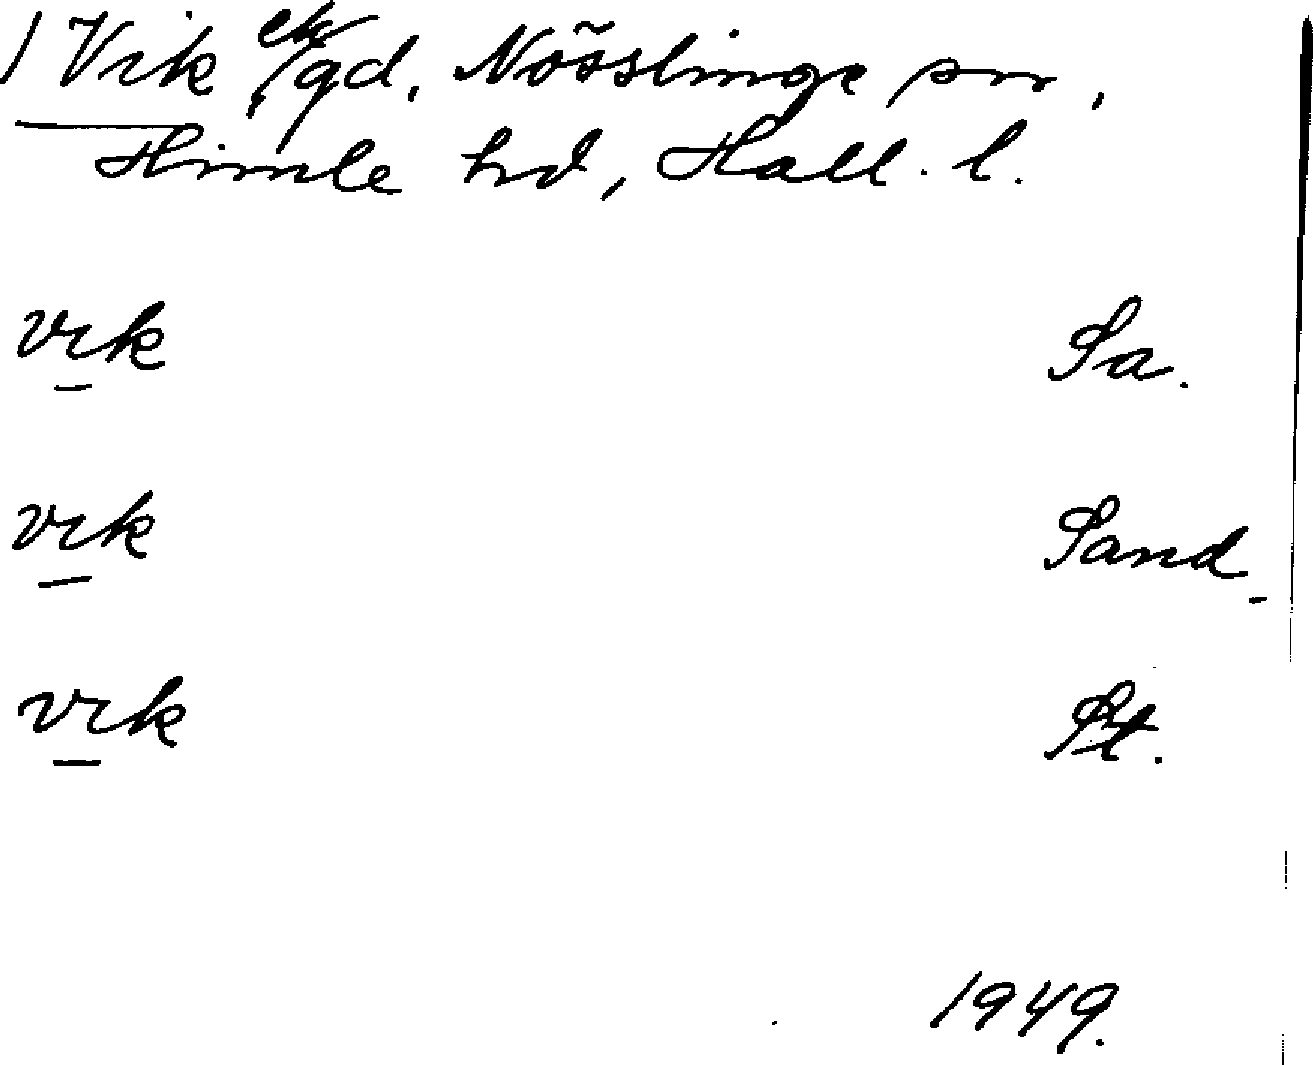 / Vik ek gd, Nösslinge sn,
Himle hd, Hall. l.
vık Sa.
vık Sand.
vık St.
1949.